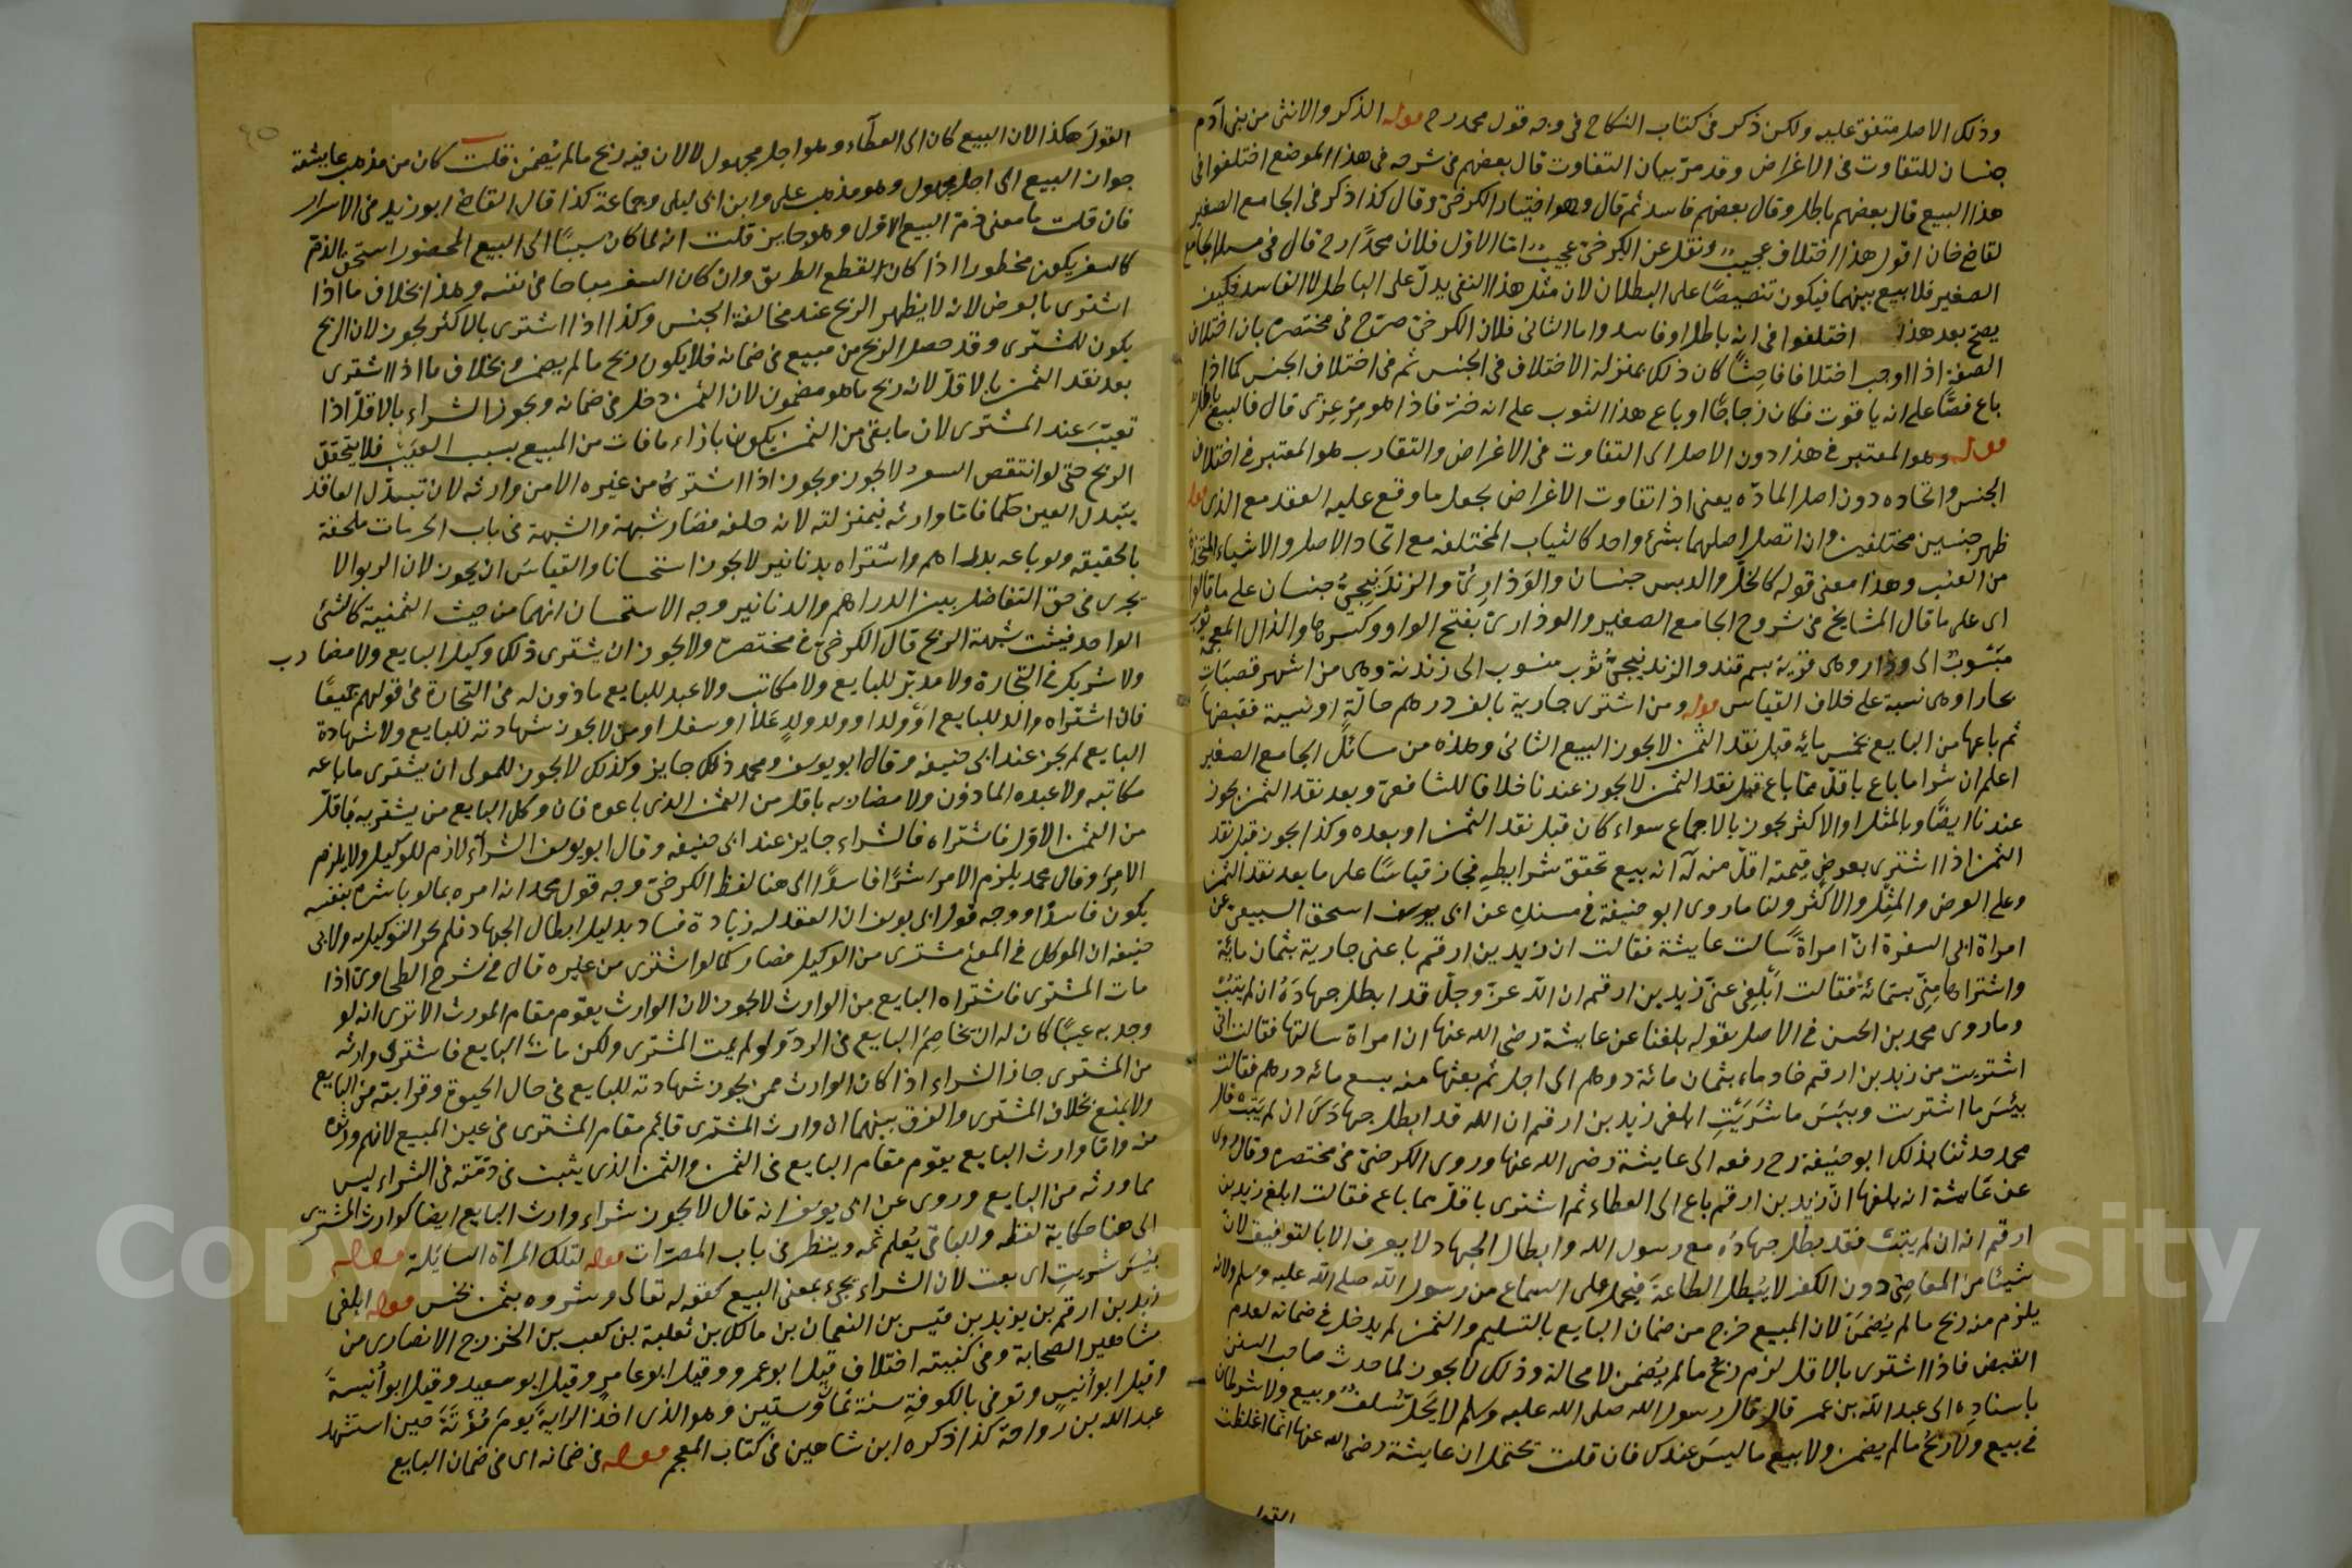 وذلك الاصل متفق عليه ولكن ذكر في كتاب النكاح في وجه قول محمد رح قوله الذكر والانثى من بني آدم
جنسان للتفاوت في الاغراض وقد مر بيان التفاوت قال بعضهم في شرحه في هذا الموضع اختلفوا في
هذا البيع قال بعضهم باطل وقال بعضهم فاسد ثم قال وهو اختيار الكرخي وقال كذا ذكر في الجامع الصغير
لقاضي خان اقول هذا اختلاف عجيب ونقل عن الكرخي عجيب اما الاول فلان محمدا رح قال في مسايل الجامع
الصغير فلا بيع بينهما فيكون تنصيصا على البطلان لان مثل هذا النفي يدل على الباطل لا الفاسد فكيف
يصح بعد هذا اختلفوا في انه باطل او فاسد واما الثاني فلان الكرخي صرح في مختصره بان اختلاف
الصفة اذا اوجب اختلافا فاحشا كان ذلك بمنزلة الاختلاف في الجنس ثم في اختلاف الجنس كما اذا
باع فصا على انه ياقوت فكان زجاجا او باع هذا الثوب على انه خز فاذا هو مرعزى قال فالبيع باطل
قوله وهو المعتبر في هذا دون الاصل اى التفاوت في الاغراض والتقارب هو المعتبر في اختلاف
الجنس واتحاده دون اصل المادة يعنى اذا تفاوت الاغراض يجعل ما وقع عليه العقد مع الذى
ظهر جنسين مختلفين وان اتصل اصلهما بشئ واحد كالثياب المختلفه مع اتحاد الاصل والاشياء المتخذة
من العنب وهذا معنى قوله كالخل والدبس جنسان والوذارى والزندنيجي جنسان على ما قالوا
اى على ما قال المشايخ في شروح الجامع الصغير والوذارى بفتح الواو وكسرها والذال المعجمة ثوب
منسوب الى وذار وهى قرية بسمرقند والزندنيجي ثوب منسوب الى زندنة وهى من اشهر قصبات
بخارا وهى نسبة على خلاف القياس قوله ومن اشترى جارية بالف درهم حالة او نسية فقبضها
ثم باعها من البايع بخمس مائه قبل نقد الثمن لا يجوز البيع الثانى وهذه من مسائل الجامع الصغير
اعلم ان شرا ما باع باقل مما باع قبل نقد الثمن لا يجوز عندنا خلافا للشافعي وبعد نقد الثمن يجوز
عندنا ايضا وبالمثل او الاكثر يجوز بالاجماع سواء كان قبل نقد الثمن او بعده وكذا يجوز قبل نقد
الثمن اذا اشترى بعوض قيمته اقل منه له انه بيع تحقق شرايطه فجاز قياسا على ما بعد نقد الثمن
وعلى العرض والمثل والاكثر ولنا ما روى ابو حنيفة في مسنده عن ابى اسحق السبيعي عن
امراة ابى السفرة ان امراة سالت عايشة فقالت ان زيد بن ارقم باعنى جارية بثمان مائة
واشتراها مني بستمائة فقالت ابلغي عني زيد بن ارقم ان الله عز وجل قد ابطل جهاده ان لم يتب
وما روى محمد بن الحسن في الاصل بقوله بلغنا عن عايشة رضي الله عنها ان امراة سالتها فقالت اني
اشتريت من زيد بن ارقم خادماء بثمان مائة درهم الى اجل ثم بعتها منه بسع مائه درهم فقالت
بيئس ما اشتريت وبيس ما شريت ابلغي زيد بن ارقم ان الله قد ابطل جهادك ان لم يتب قال
محمد حدثنا بذلك ابو حنيفة رح رفعه الى عايشة رضي الله عنها وروى الكرخي في مختصره وقال روى
عن عايشة انه بلغها ان زيد بن ارقم باع الى العطاء ثم اشترى باقل مما باع فقالت ابلغ زيد بن
ارقم انه ان لم يتب فقد بطل جهاده مع رسول الله وابطال الجهاد لا يعرف الا بالتوقيف لان
شيئا من المعاصي دون الكفر لا يبطل الطاعة فيحمل على السماع من رسول الله صلى الله عليه وسلم ولانه
يلزم منه ربح ما لم يضمن لان المبيع خرج من ضمان البايع بالتسليم والثمن لم يدخل في ضمانه لعدم
القبض فاذا اشترى بالاقل لزم ربح ما لم يضمن لا محالة وذلك لا يجوز لما حدث صاحب السنن
باسناده الى عبد الله بن عمر قال قال رسول الله صلى الله عليه وسلم لا يحل سلف وبيع ولا شرطان
في بيع ولا ربح ما لم يضمن ولا بيع ما ليس عندك فان قلت يحتمل ان عايشة رضي الله عنها انما اغلظت
القول
القول هكذا لان البيع كان الى العطاء وهو اجل مجهول لا لان فيه ربح ما لم يضمن قلت كان من مذهب عايشة
جواز البيع الى اجل مجهول وهو مذهب على وابن ابى ليلى وجماعة كذا قال القاضي ابو زيد في الاسرار
فان قلت ما معنى ذم البيع الاول وهو جايز قلت انه لما كان سببا الى البيع المحضور استحق الذم
كالسفر يكون محظورا اذا كان لقطع الطريق وان كان السفر مباحا في نفسه وهذا بخلاف ما اذا
اشترى بالعرض لانه لا يظهر الربح عند مخالفة الجنس وكذا اذا اشترى بالاكثر يجوز لان الربح
يكون للمشترى وقد حصل الربح من مبيع في ضمانه فلا يكون ربح ما لم يضمن وبخلاف ما اذا اشترى
بعد نقد الثمن بالاقل لانه ربح ما هو مضمون لان الثمن دخل في ضمانه ويجوز الشراء بالاقل اذا
تعيب عند المشترى لان ما بقى من الثمن يكون بازاء ما فات من المبيع بسبب العيب فلا يتحقق
الربح حتى لو انتقص السعر لا يجوز ويجوز اذا اشترى من غيره الا من وارثه لان تبدل العاقد
يتبدل العين حكما فاما وارثه بمنزلته لانه خلفه فصار شبهة والشبهة في باب الحرمات ملحقة
بالحقيقه ولو باعه بدراهم واشتراه بدنانير لا يجوز استحسانا والقياس ان يجوز لان الربوا لا
يجرى في حق التفاضل بين الدراهم والدنانير وجه الاستحسان انهما من حيث الثمنية كالشئ
الواحد فيثبت شبهة الربح قال الكرخي في مختصره ولا يجوز ان يشترى ذلك وكيل البايع ولا مضارب
ولا شريك في التجارة ولا مدبر للبايع ولا مكاتب ولا عبد للبايع ماذون له في التجارة في قولهم جميعا
فان اشتراه والد للبايع او ولد او ولد ولد علا او سفل او من لا يجوز شهادته للبايع ولا شهادة
البايع لم يجز عند ابى حنيفه وقال ابو يوسف ومحمد ذلك جايز وكذلك لا يجوز للمولى ان يشترى ما باعه
مكاتبه ولا عبده الماذون ولا مضاربه باقل من الثمن الذى باعوه فان وكل البايع من يشتريه باقل
من الثمن الاول فاشتراه فالشراء جايز عند ابى حنيفه وقال ابو يوسف الشراء لازم للوكيل ولا يلزم
الامر وقال محمد يلزم الامر شرا فاسدا الى هنا لفظ الكرخي وجه قول محمد انه امره بما لو باشره بنفسه
يكون فاسدا ووجه قول ابى يوسف ان العقد له زيادة فساد بدليل ابطال الجهاد فلم يجز التوكيل به ولابى
حنيفه ان الموكل في المعنى مشترى من الوكيل فصار كما لو اشترى من غيره قال في شرح الطحاوى اذا
مات المشترى فاشتراه البايع من الوارث لا يجوز لان الوارث يقوم مقام المورث الا ترى انه لو
وجد به عيبا كان له ان يخاصم البايع في الرد ولو لم يمت المشترى ولكن مات البايع فاشترى وارثه
من المشترى جاز الشراء اذا كان الوارث ممن يجوز شهادته للبايع في حال الحيوة وقرابته من البايع
ولا يمنع بخلاف المشترى والفرق بينهما ان وارث المشترى قايم مقام المشترى في عين المبيع لانهم ورثوه
منه واما وارث البايع يقوم مقام البايع في الثمن والثمن الذى يثبت في ذمته في الشراء ليس
مما ورثه من البايع وروى عن ابى يوسف انه قال لا يجوز شراء وارث البايع ايضا كوارث المشترى
الى هنا حكاية لفظه والباقى يعلم ثمه وينظر في باب المصرات قوله لتلك المراة السايلة قوله
بيس شريت اى بعت لان الشراء يجئ بمعنى البيع كقوله تعالى وشروه بثمن بخس قوله ابلغى
زيد بن ارقم بن يزيد بن قيس بن النعمان بن مالك بن ثعلبة بن كعب بن الخزرج الانصارى من
مشاهير الصحابة وفي كنيته اختلاف قيل ابو عمرو وقيل ابو عامر وقيل ابو سعيد وقيل ابو انيسة
وقيل ابو انيس وتوفى بالكوفة سنة ثمان وستين وهو الذى اخذ الراية يوم مؤتة حين استشهد
عبد الله بن رواحة كذا ذكره ابن شاهين في كتاب المعجم قوله في ضمانه اى في ضمان البايع
Copyright © King Saud University